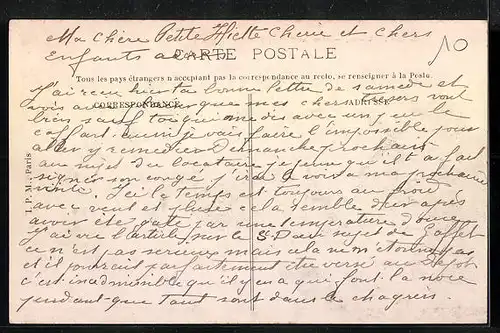 Ma chère Petite Chérie et Chers
enfants
10
CARTE POSTALE
Tous les pays étrangers n'acceptant pas la correspondance au recto, se renseigner à la Poste.
J'ai reçu hier ta bonne lettre de samedi et
CORRESPONDANCE
ADRESSE
vois que mes chers vont
bien sauf toi qui me dis avec un peu le
cafard aussi je vais faire l'impossible pour
aller y remédier dimanche prochain
au sujet du locataire je pense qu'il t'a fait
signer son congé j'irai le voir à ma prochaine
visite. Ici le temps est toujours au froid
avec vent et pluie cela semble dur après
avoir été gâté par une température douce
J'ai lu l'article sur le au sujet de
ce n'est pas sérieux mais cela ne m'étonne pas
et il pourrait parfaitement être versé au dépôt
c'est inadmissible qu'il y en a qui font la noce
pendant que tant sont dans le chagrin.
I. P. M. Paris